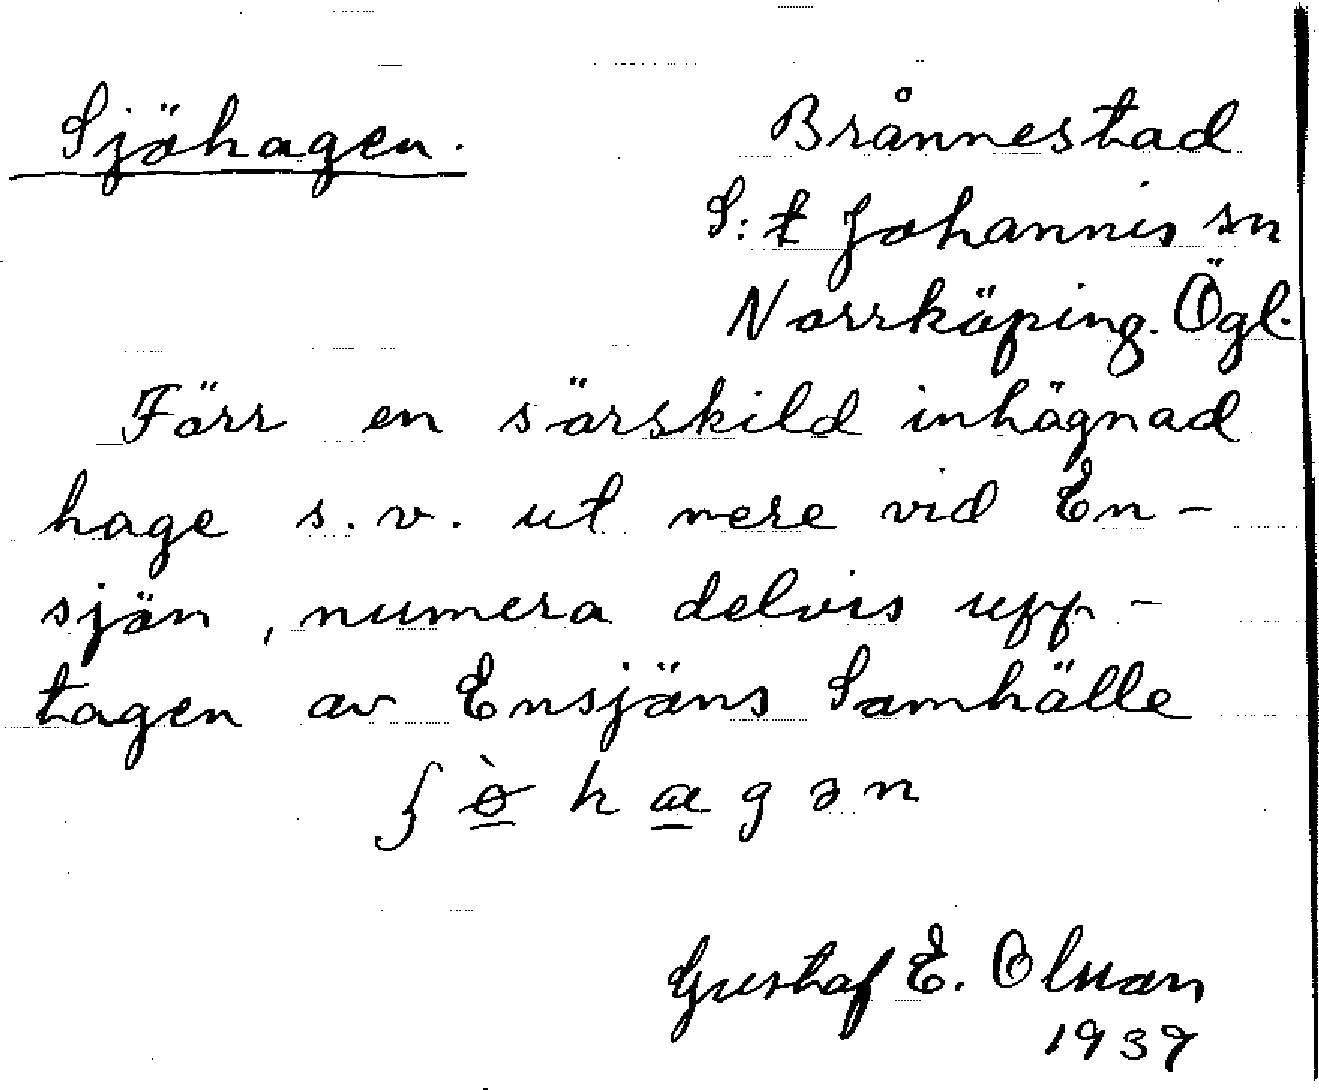 Sjöhagen.
Brånnestad
S:t Johannis sn
Norrköping. Ögl.
Förr en särskild inhägnad
hage s.v. ut mere vid En-
sjön, numera delvis upp-
tagen av Ensjöns Samhälle
ʃ ø̀ h a g ə n
Gustaf E.
1937